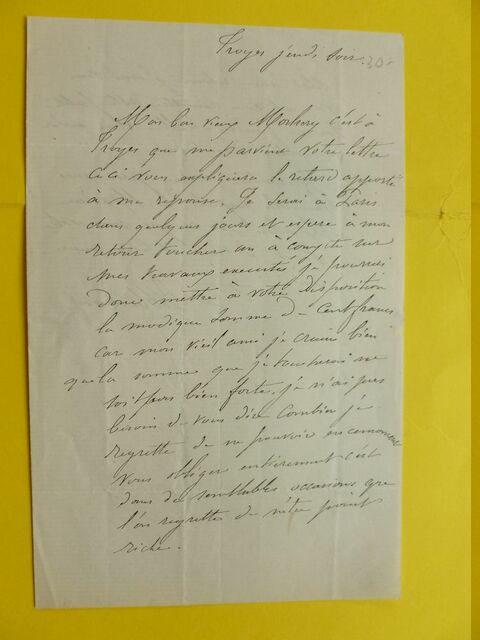 Troyes jeudi soir. 30-
Mon bon vieux c'est à
Troyes que me parvient votre lettre
ceci vous expliquera le retard apporté
à ma réponse. Je serai à Paris
dans quelques jours et espère à mon
retour toucher un à compte sur
mes travaux executés je pourrai
donc mettre à votre disposition
la modique somme de cent francs
car mon vieil ami je crains bien
que la somme que je toucherai ne
soit pas bien forte. je n'ai pas
besoin de vous dire combien je
regrette de ne pouvoir en ce moment
vous obliger entièrement c'est
dans de semblables occasions que
l'on regrette de n'être point
riche.